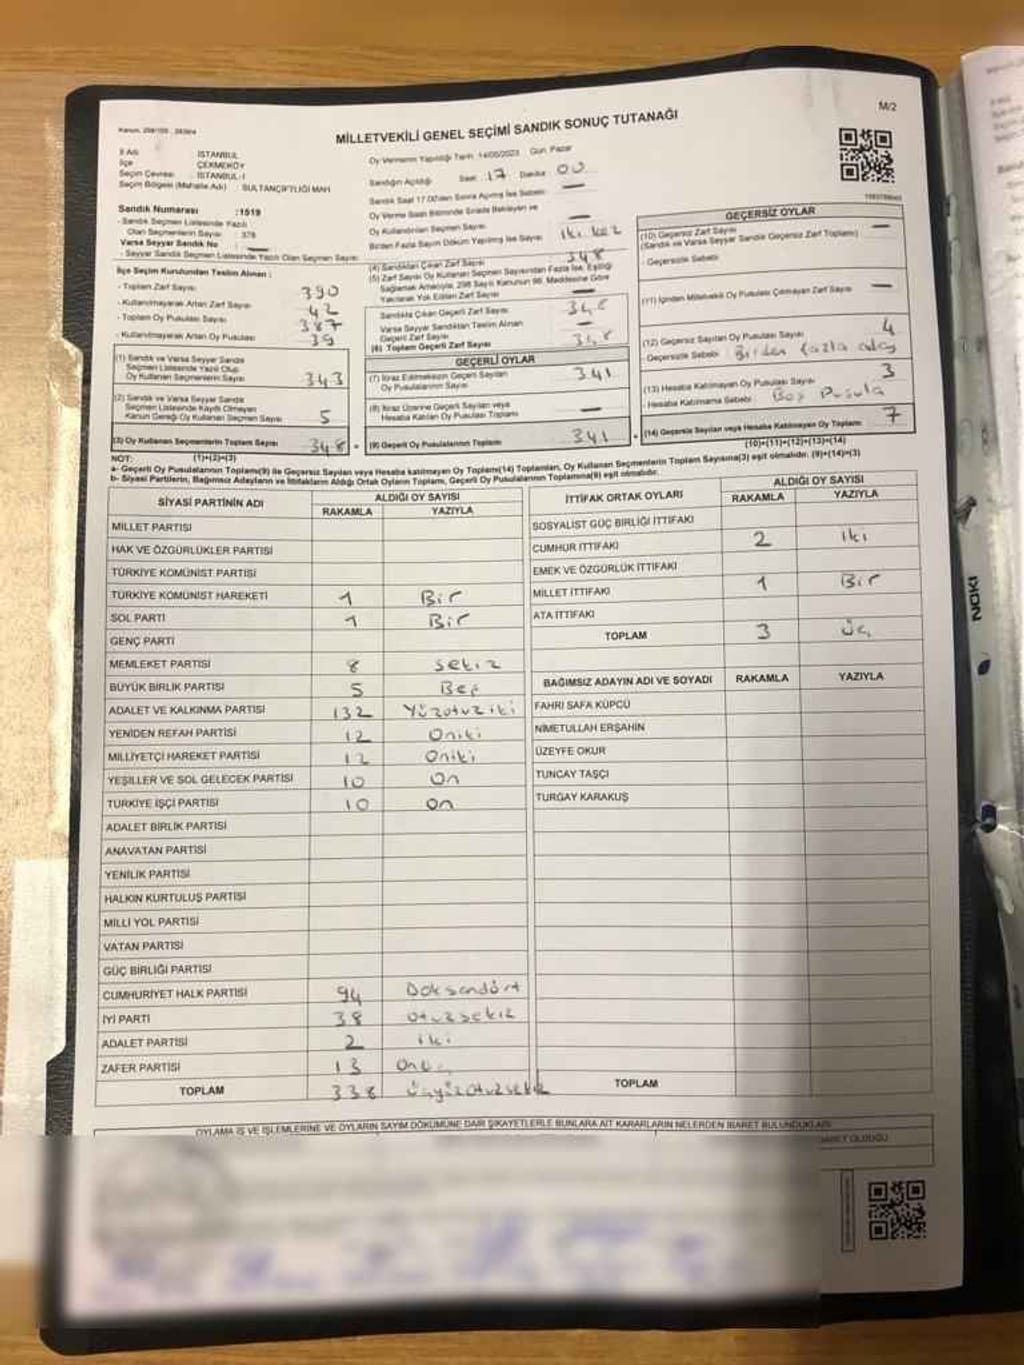 M/2
MİLLETVEKİLİ GENEL SEÇİMİ SANDIK SONUÇ TUTANAĞI
İl Adı : İSTANBUL
İlçe : ÇEKMEKÖY
Seçim Çevresi : İSTANBUL-1
Seçim Bölgesi (Mahalle Adı) : SULTANÇİFTLİĞİ MAH.
Oy Vermenin Yapıldığı Tarih: 14/05/2023 Gün: Pazar
Sandığın Açıldığı Saat: 17 Dakika: 00
Sandık Saat 17.00'den Sonra Açılmış İse Sebebi: —
Oy Verme Saati Bitiminde Sırada Bekleyen ve
Oy Kullandırılan Seçmen Sayısı: —
Birden Fazla Sayım Döküm Yapılmış İse Sayısı: iki kez
Sandık Numarası :1519
- Sandık Seçmen Listesinde Yazılı
Olan Seçmenlerin Sayısı: 378
Varsa Seyyar Sandık No : —
- Seyyar Sandık Seçmen Listesinde Yazılı Olan Seçmen Sayısı:
İlçe Seçim Kurulundan Teslim Alınan :
- Toplam Zarf Sayısı: 390
- Kullanılmayarak Artan Zarf Sayısı: 42
- Toplam Oy Pusulası Sayısı: 387
- Kullanılmayarak Artan Oy Pusulası: 39
(1) Sandık ve Varsa Seyyar Sandık
Seçmen Listesinde Yazılı Olup
Oy Kullanan Seçmenlerin Sayısı: 343
(2) Sandık ve Varsa Seyyar Sandık
Seçmen Listesinde Kayıtlı Olmayan
Kanun Gereği Oy Kullanan Seçmen Sayısı: 5
(3) Oy Kullanan Seçmenlerin Toplam Sayısı 348
(1)+(2)=(3)
(4) Sandıktan Çıkan Zarf Sayısı: 348
(5) Zarf Sayısı Oy Kullanan Seçmen Sayısından Fazla İse, Eşitliği
Sağlamak Amacıyla, 298 Sayılı Kanunun 98. Maddesine Göre
Yakılarak Yok Edilen Zarf Sayısı: —
Sandıkta Çıkan Geçerli Zarf Sayısı: 348
Varsa Seyyar Sandıktan Teslim Alınan
Geçerli Zarf Sayısı: —
(6) Toplam Geçerli Zarf Sayısı: 348
GEÇERLİ OYLAR
(7) İtiraz Edilmeksizin Geçerli Sayılan
Oy Pusulalarının Sayısı: 341
(8) İtiraz Üzerine Geçerli Sayılan veya
Hesaba Katılan Oy Pusulası Toplamı: —
(9) Geçerli Oy Pusulalarının Toplamı: 341
GEÇERSİZ OYLAR
(10) Geçersiz Zarf Sayısı —
(Sandık ve Varsa Seyyar Sandık Geçersiz Zarf Toplamı)
- Geçersizlik Sebebi:
(11) İçinden Milletvekili Oy Pusulası Çıkmayan Zarf Sayısı: —
(12) Geçersiz Sayılan Oy Pusulası Sayısı: 4
- Geçersizlik Sebebi: Birden fazla aday
(13) Hesaba Katılmayan Oy Pusulası Sayısı: 3
- Hesaba Katılmama Sebebi: Boş Pusula
(14) Geçersiz Sayılan veya Hesaba Katılmayan Oy Toplamı: 7
(10)+(11)+(12)+(13)=(14)
NOT:
a- Geçerli Oy Pusulalarının Toplamı(9) ile Geçersiz Sayılan veya Hesaba katılmayan Oy Toplamı(14) Toplamları, Oy Kullanan Seçmenlerin Toplam Sayısına(3) eşit olmalıdır. (9)+(14)=(3)
b- Siyasi Partilerin, Bağımsız Adayların ve İttifakların Aldığı Ortak Oyların Toplamı, Geçerli Oy Pusulalarının Toplamına(9) eşit olmalıdır.
SİYASİ PARTİNİN ADI ALDIĞI OY SAYISI
RAKAMLA YAZIYLA
MİLLET PARTİSİ
HAK VE ÖZGÜRLÜKLER PARTİSİ
TÜRKİYE KOMÜNİST PARTİSİ
TÜRKİYE KOMÜNİST HAREKETİ 1 Bir
SOL PARTİ 1 Bir
GENÇ PARTİ
MEMLEKET PARTİSİ 8 sekiz
BÜYÜK BİRLİK PARTİSİ 5 Beş
ADALET VE KALKINMA PARTİSİ 132 Yüzotuziki
YENİDEN REFAH PARTİSİ 12 Oniki
MİLLİYETÇİ HAREKET PARTİSİ 12 Oniki
YEŞİLLER VE SOL GELECEK PARTİSİ 10 On
TÜRKİYE İŞÇİ PARTİSİ 10 On
ADALET BİRLİK PARTİSİ
ANAVATAN PARTİSİ
YENİLİK PARTİSİ
HALKIN KURTULUŞ PARTİSİ
MİLLİ YOL PARTİSİ
VATAN PARTİSİ
GÜÇ BİRLİĞİ PARTİSİ
CUMHURİYET HALK PARTİSİ 94 Doksandört
İYİ PARTİ 38 otuzsekiz
ADALET PARTİSİ 2 iki
ZAFER PARTİSİ 13
TOPLAM 338 üçyüzotuzsekiz
İTTİFAK ORTAK OYLARI ALDIĞI OY SAYISI
RAKAMLA YAZIYLA
SOSYALİST GÜÇ BİRLİĞİ İTTİFAKI
CUMHUR İTTİFAKI 2 iki
EMEK VE ÖZGÜRLÜK İTTİFAKI
MİLLET İTTİFAKI 1 Bir
ATA İTTİFAKI
TOPLAM 3 üç
BAĞIMSIZ ADAYIN ADI VE SOYADI RAKAMLA YAZIYLA
FAHRİ SAFA KÜPCÜ
NİMETULLAH ERŞAHİN
ÜZEYFE OKUR
TUNCAY TAŞÇI
TURGAY KARAKUŞ
TOPLAM
OYLAMA İŞ VE İŞLEMLERİNE VE OYLARIN SAYIM DÖKÜMÜNE DAİR ŞİKAYETLERLE BUNLARA AİT KARARLARIN NELERDEN İBARET BULUNDUKLARI
NOKI